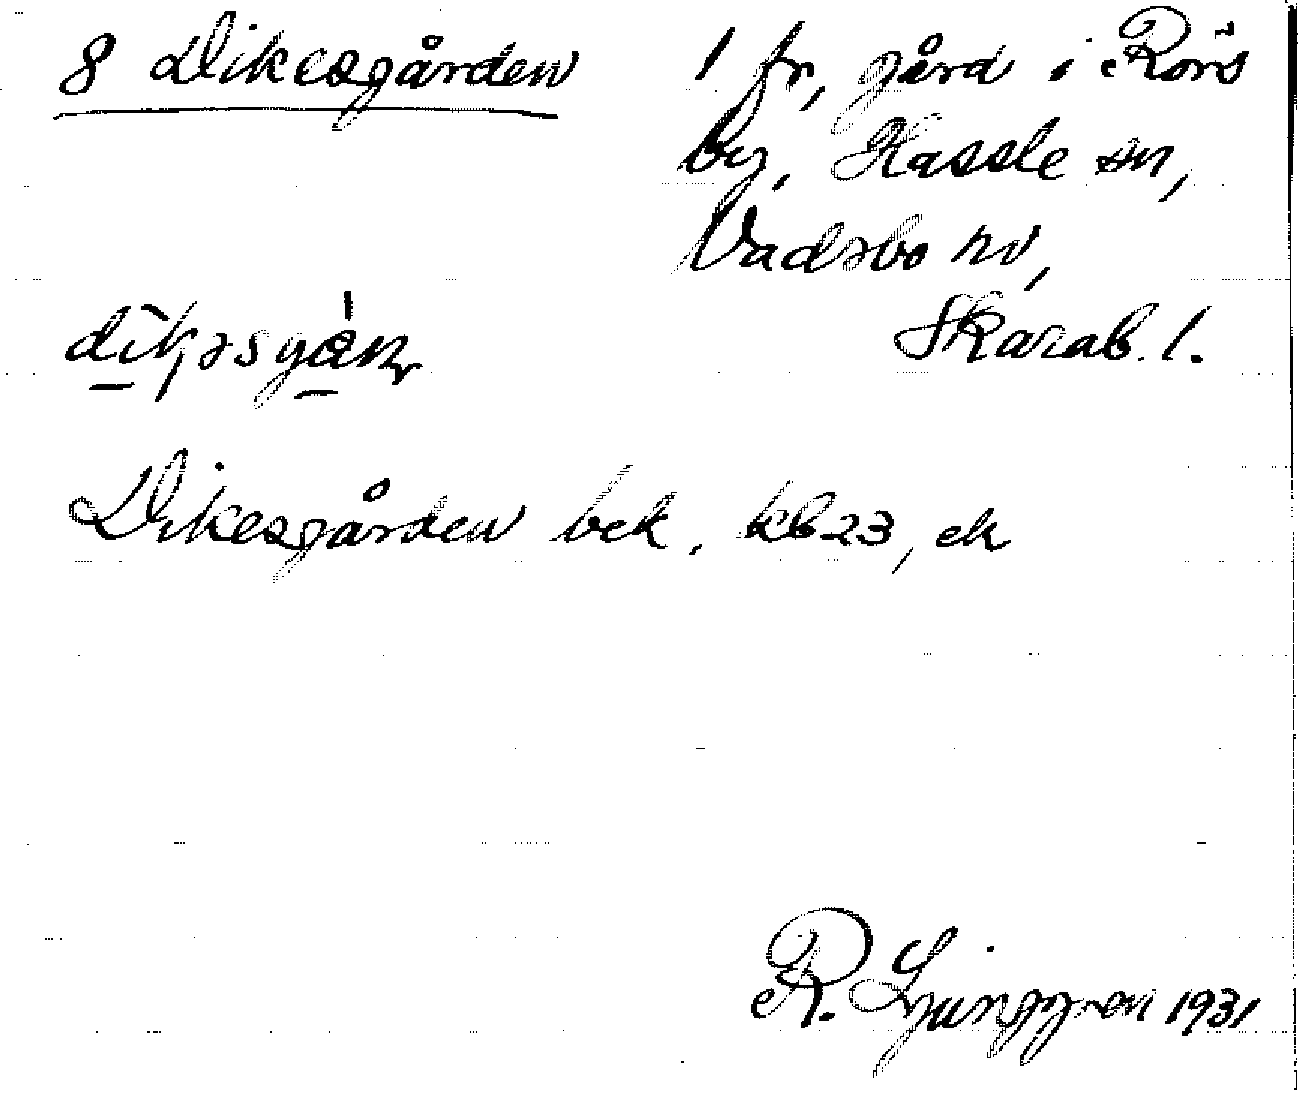 8 Dikesgården
1 fr, gård i Rörs
by, Hassle sn,
Vadsbo hd,
Skarab. l.
Dikesgården bek. kb 23, ek
R. Ljunggren 1931